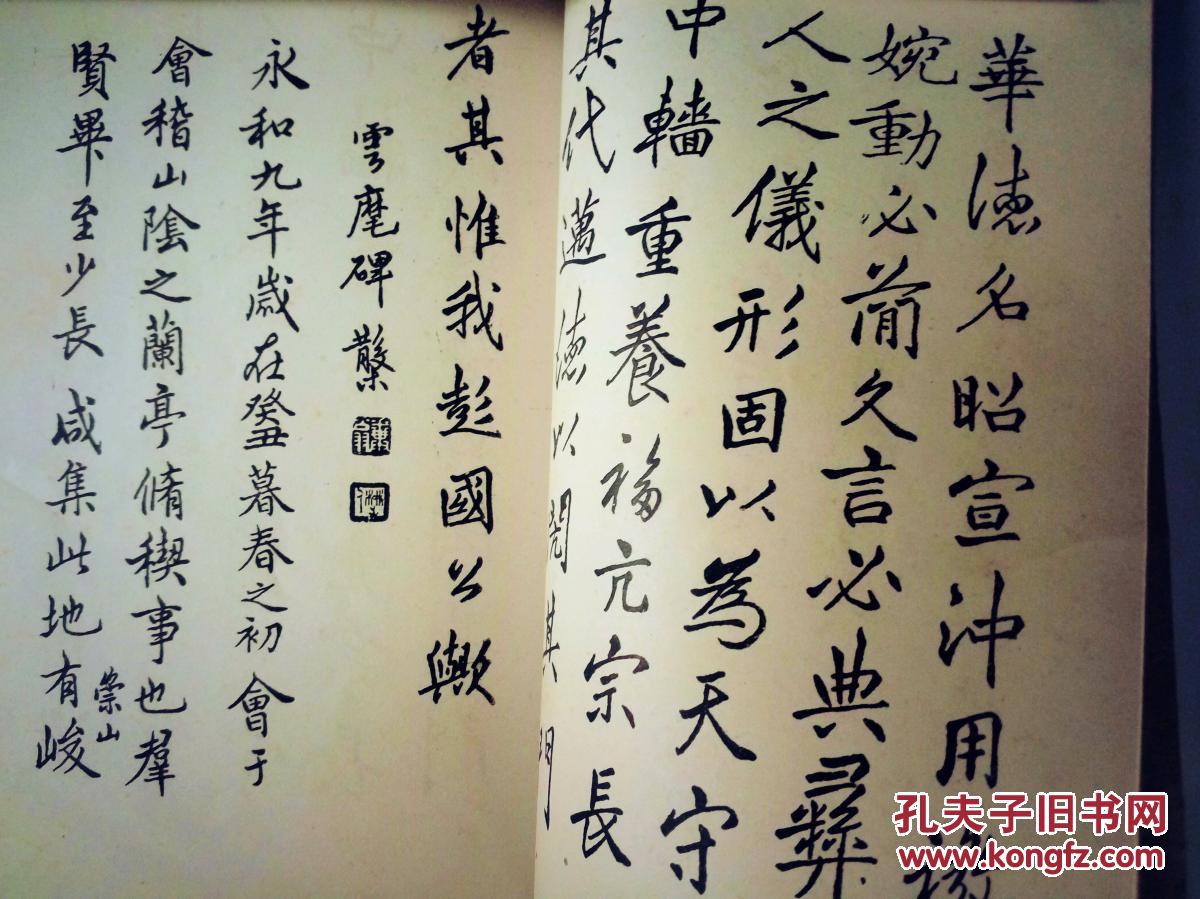 華德名昭宣沖用
婉動必簡久言必典彝
人之儀形固以為天守
中牆重養福亢宗長
其代邁德以其門
者其惟我彭國公歟
雲麾碑
永和九年歲在癸丑暮春之初會于
會稽山陰之蘭亭脩稧事也羣
崇山
賢畢至少長咸集此地有峻
孔夫子旧书网
www.kongfz.com